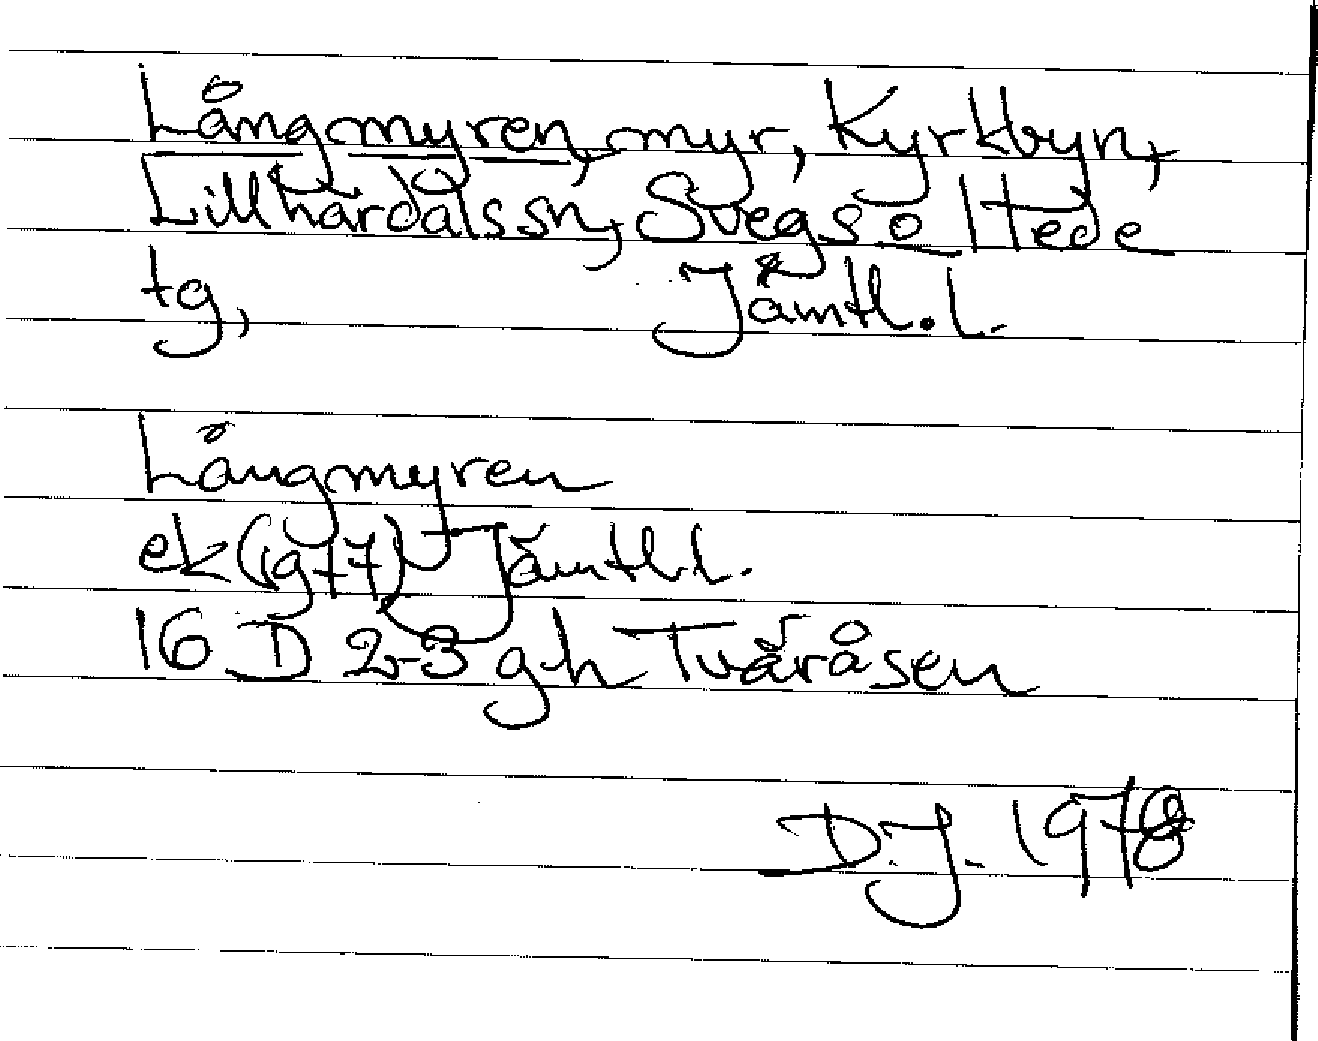 Långmyren, myr, Kyrkbyn,
Lillhärdals sn, Svegs o Hede
tg, Jämtl. l.
Långmyren
ek (1977) Jämtl. l.
16 D 2-3 g-h Tväråsen
D.J. 1978